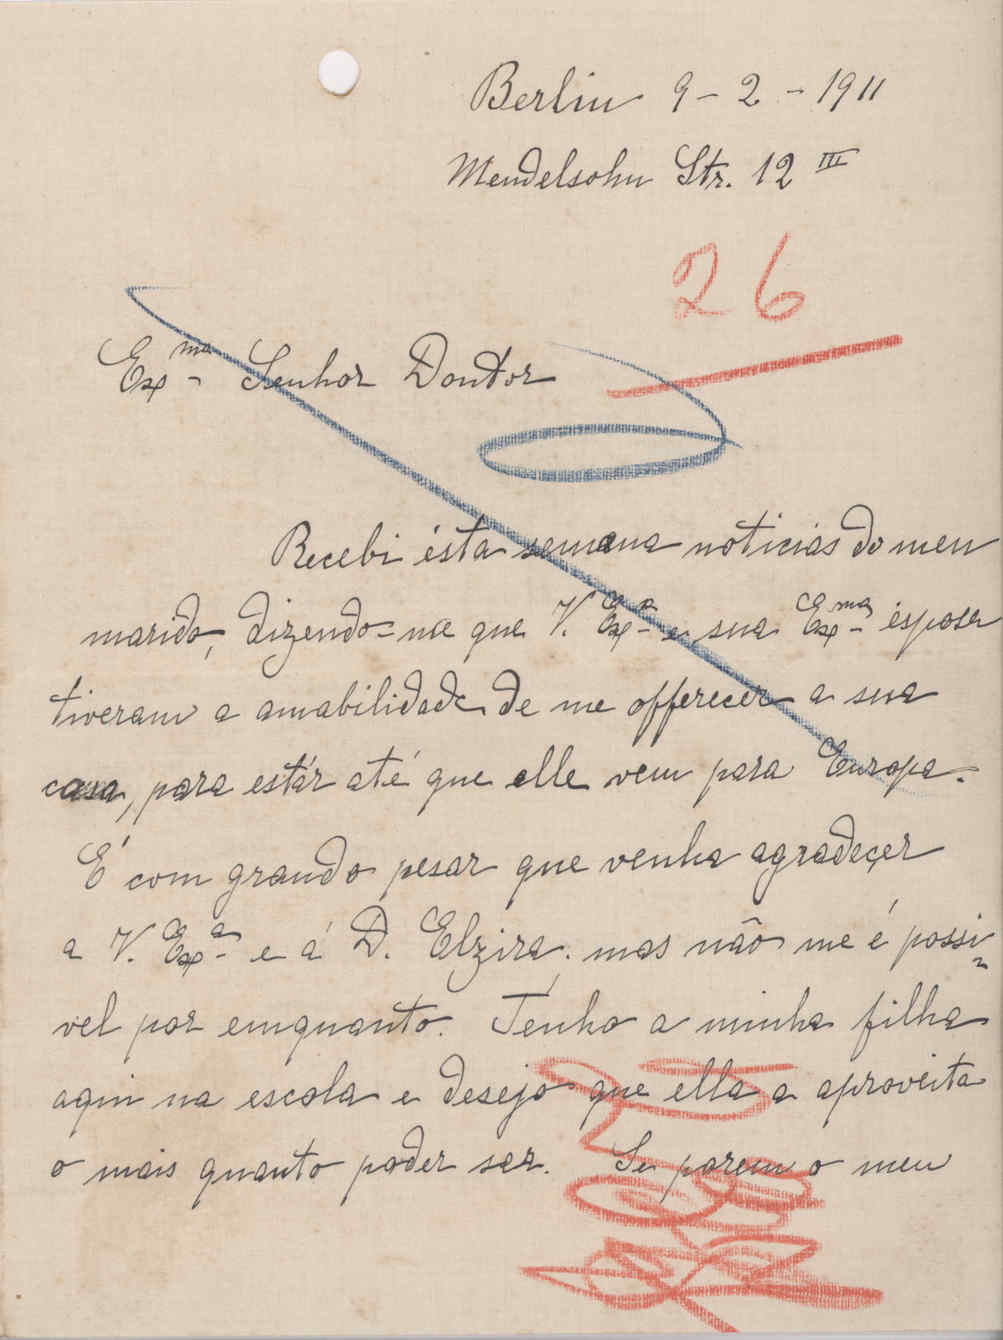 Berlin 9-2-1911
Mendelsohn Str. 12 III
26
Exma Senhor Doutor
Recebi ésta semana noticias do meu
marido, dizendo-me que V. Exa e sua Exma esposa
tiveram a amabilidade de me offerecer a sua
casa, para estár até que elle vem para Europa.
É com grando pesar que venho agradeçer
a V. Exa e á D. Elzira, mas não me é possi-
vel por emquanto. Tenho a minha filha
aqui na escola e desejo que ella a aproveita
o mais quanto poder ser. Se porem o meu